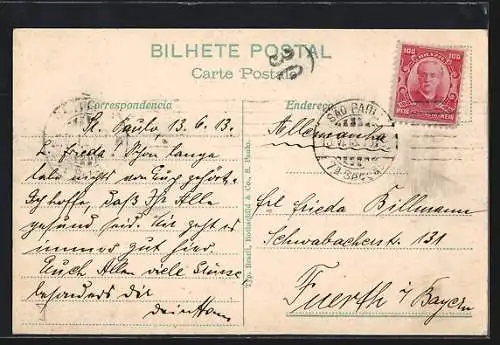 BILHETE POSTAL
Carte Postale
Correspondencia
Endereço
St. Paulo 13.6.13.
L. Frieda! Schon lange
habe nicht von Euch gehört.
Ich hoffe, daß Ihr Alle
gesund seid. Mir geht es
immer gut hier.
Euch Allen viele Grüsse
besonders dir
dein
Typ. Brazil, Rothschild & Co., S. Paulo.
100 BRAZIL 100
REIS REIS
SÃO PAULO
Allemanha
Frl Frieda Billmann
Schwabacherstr. 131
Fuerth i/Bayern